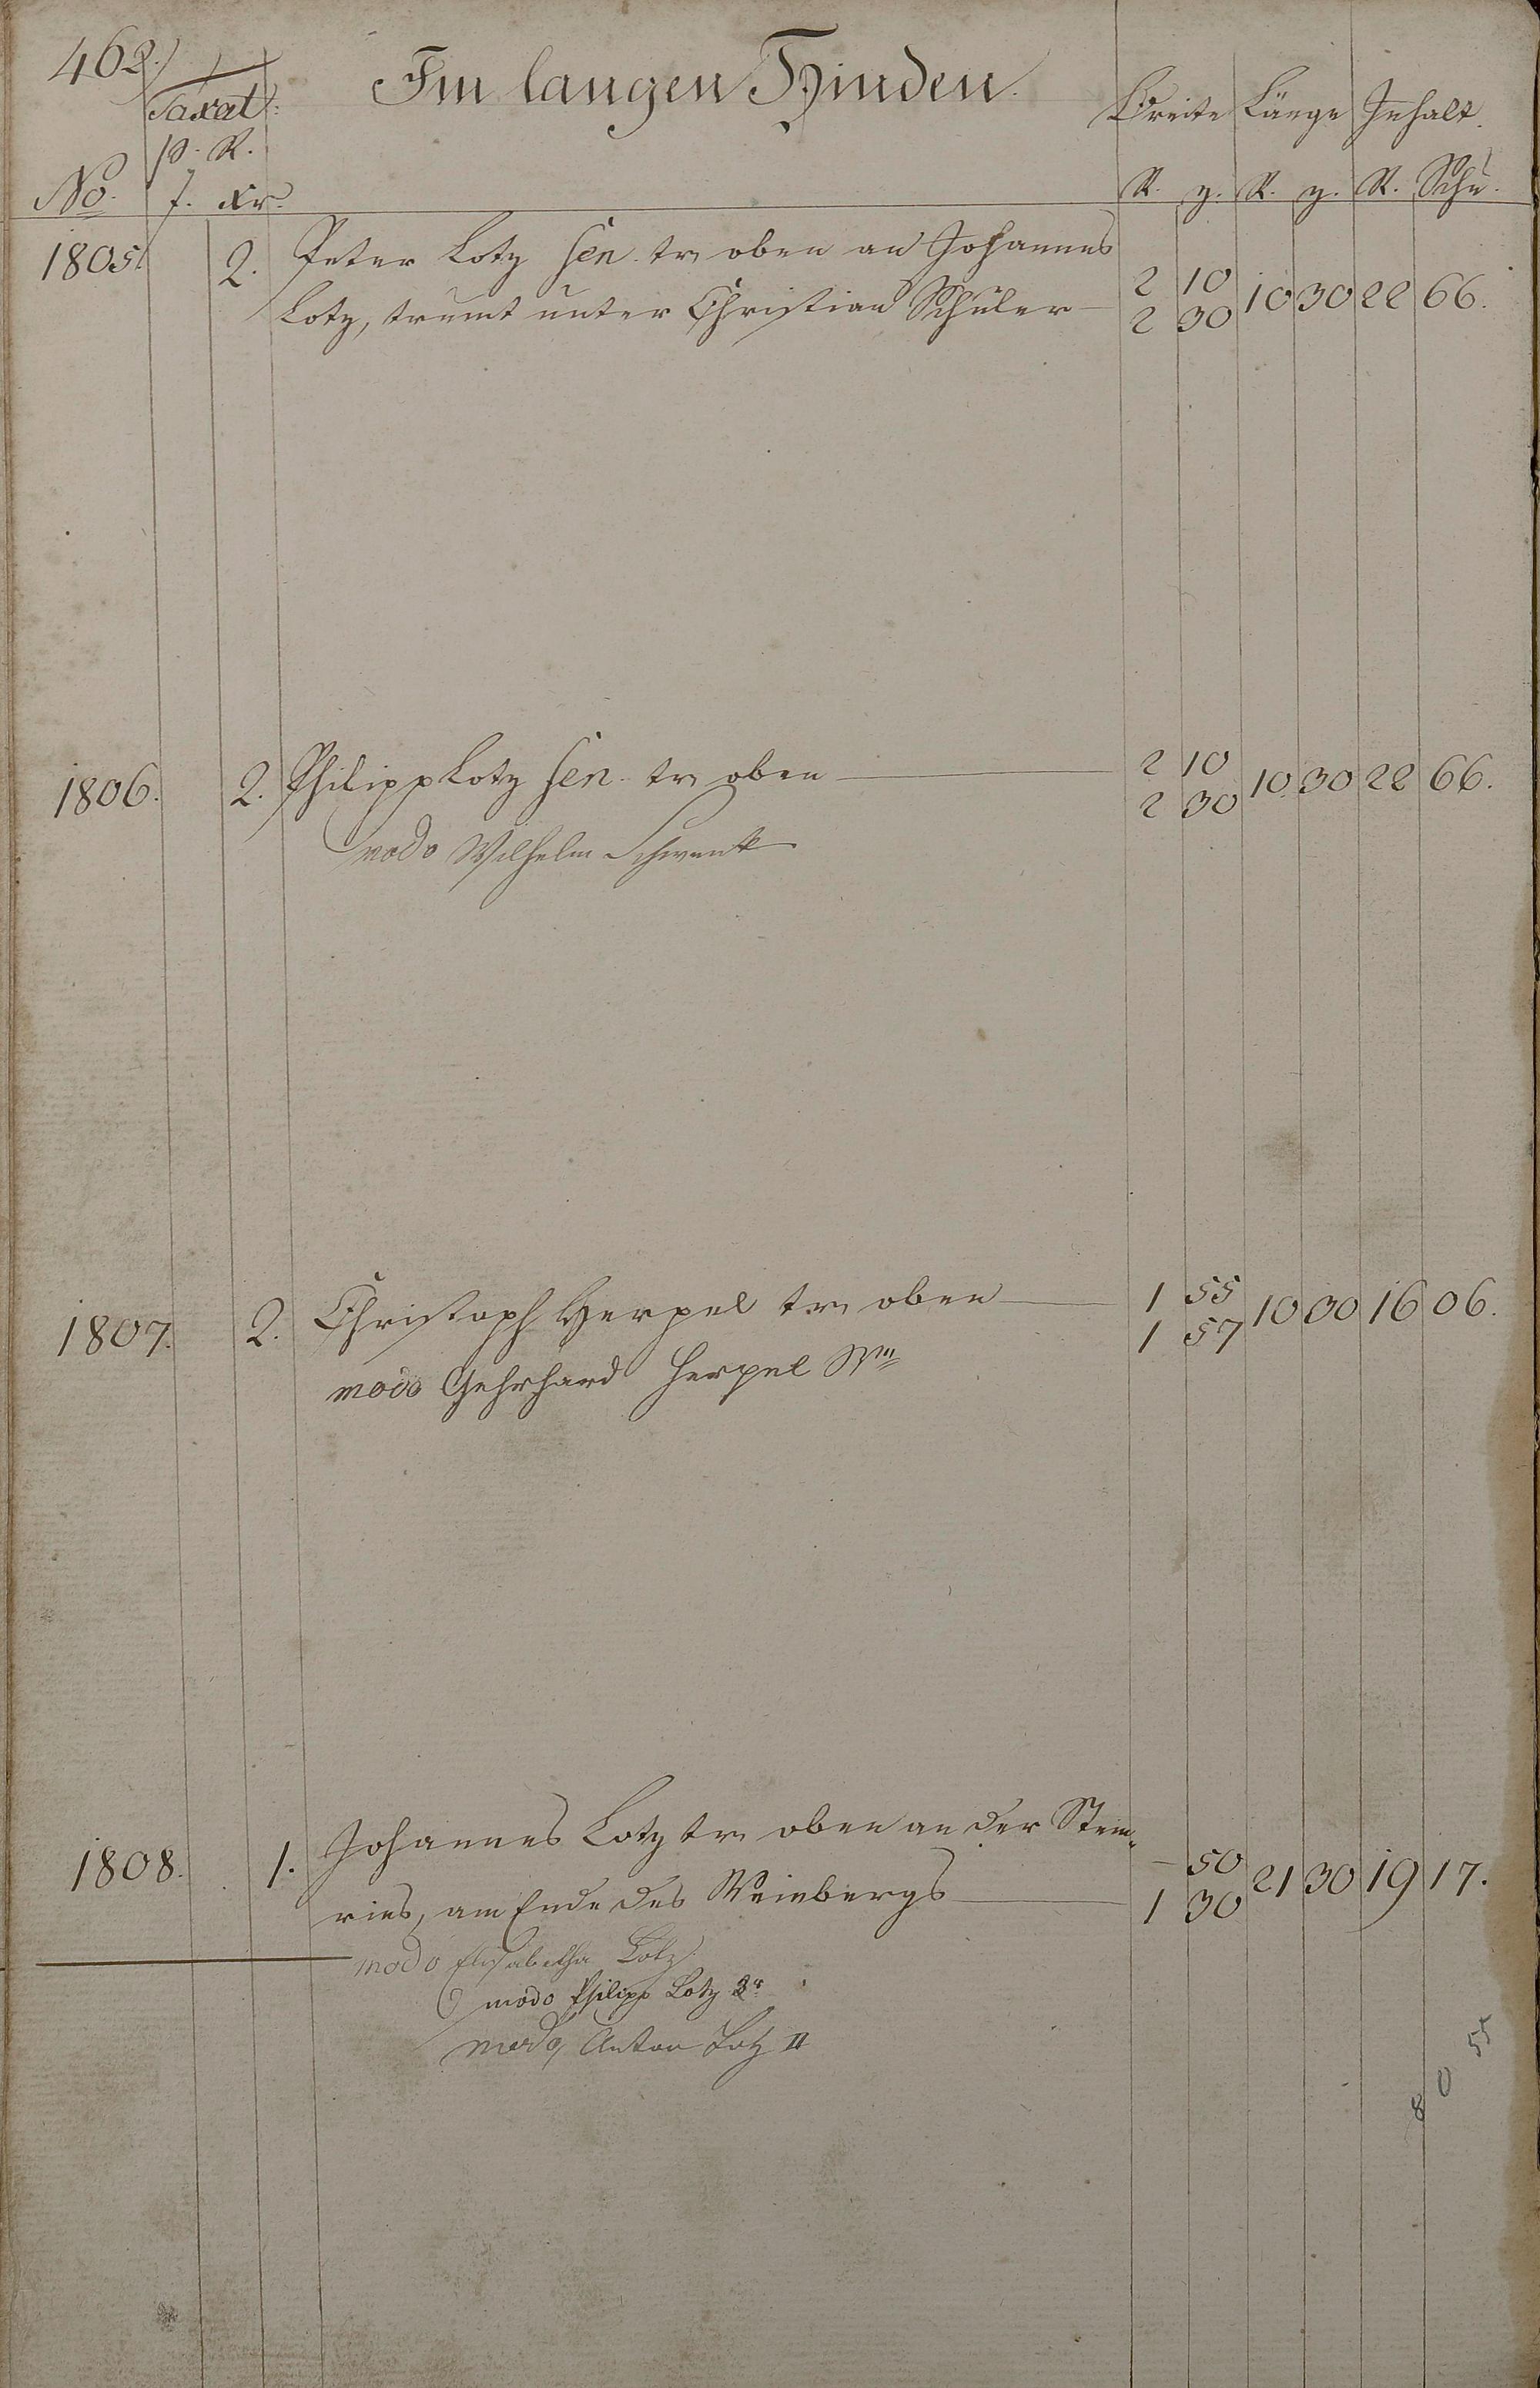 462.
Im langen Hinden.
Taxat:
p. R.
No. f. Xr.
Breite Länge Inhalt.
R. z. R. z. R. Schu.
1805. 2. Peter Lotz sen. tr. oben an Johannes
Lotz, trumt unter Christian Schuler
2 10
2 30
10 30 22 66.
1806. 2. Philipp Lotz sen. tr. oben
2 10
2 30
10 30 22 66.
modo Wilhelm Schwenk
1807. 2. Christoph Herpel tr. oben
1 55
1 57
10 30 16 06.
modo Gehrhard Herpel
1808. 1. Johannes Lotz tr. oben an der Stein-
ries, am Ende des Weinbergs
- 50
1 30
21 30 19 17.
modo Elisabetha Lotz.
modo Philipp Lotz 3r
modo Anton Lotz II
80 55